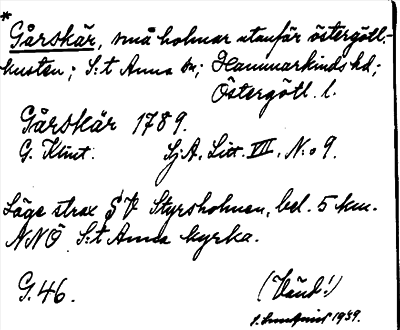 *
Gårskär, små holmar utanför östergötl.-
kusten; S:t Anna sn; Hammarkinds hd;
Östergötl. l.
Gårskär 1789.
G. Klint. Sj.A. Litt. VII. N:o 9.
Läge strax SV Styrsholmen, bel. 5 km.
NNÖ S:t Anna kyrka.
G. 46. (Vänd!)
1939.